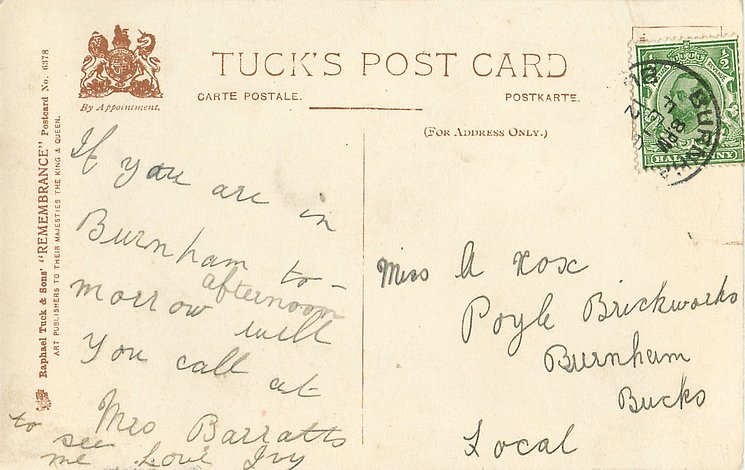 TUCK'S POST CARD
CARTE POSTALE.
POSTKARTE.
(FOR ADDRESS ONLY.)
By Appointment.
Raphael Tuck & Sons' "REMEMBRANCE" Postcard No. 6378
ART PUBLISHERS TO THEIR MAJESTIES THE KING & QUEEN.
If you are in
Burnham to-
morrow afternoon will
You call at
Mrs Barratts
to see
me Love Ivy
Miss A
Poyle Brickworks
Burnham
Bucks
Local
8 PM
12